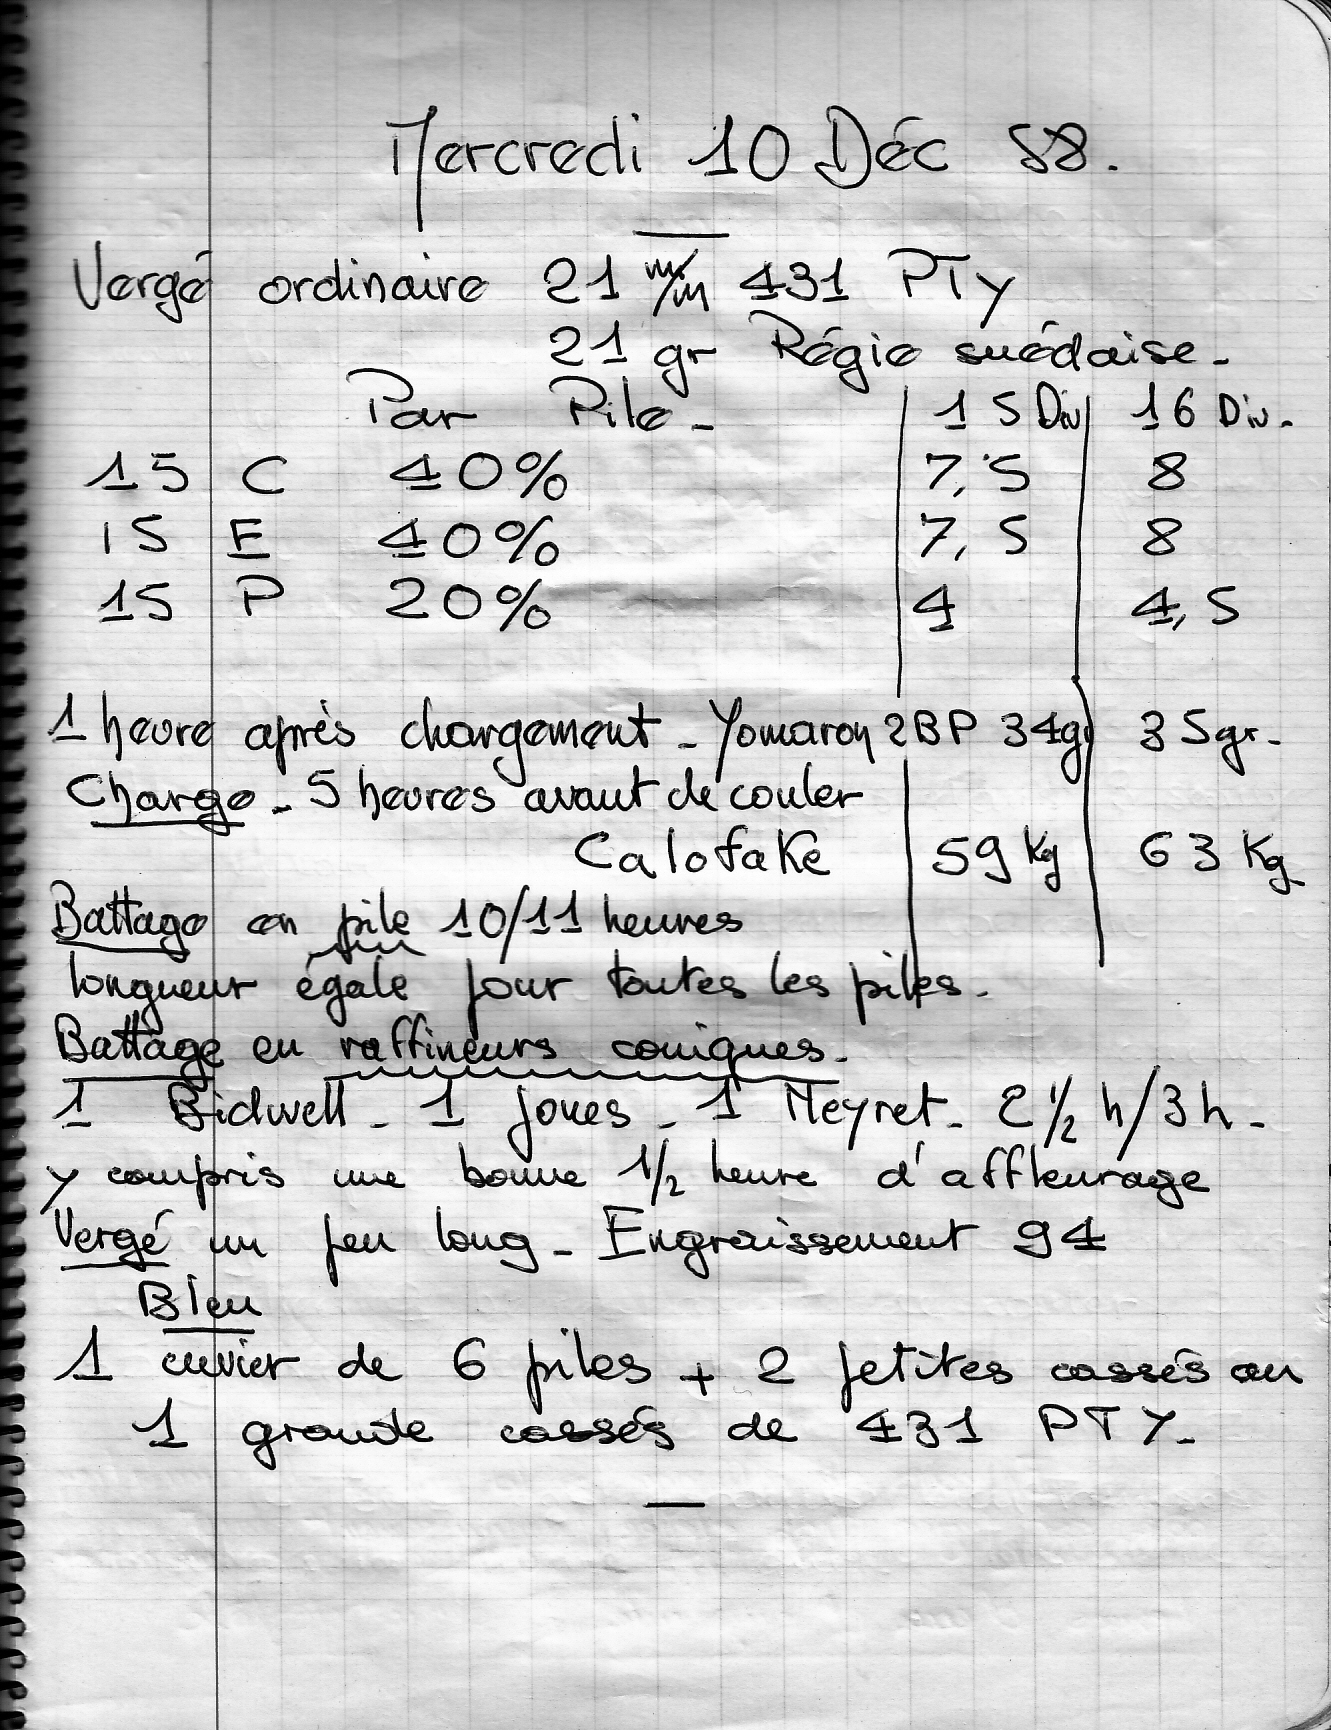 Mercredi 10 Déc 58.
Vergé ordinaire 21 m/m 431 PTY
21 gr Régie suédaise -
Par Pile - 15 Div 16 Div.
15 C 40% 7,5 8
15 E 40% 7,5 8
15 P 20% 4 4,5
1 heure après chargement - Yomaron 2BP 34gr 35gr.
Charge - 5 heures avant de couler
Calofake 59 Kg 63 Kg
Battage en pile 10/11 heures
longueur égale pour toutes les piles -
Battage en raffineurs coniques -
1 Bidwell - 1 Jones - 1 Neyret - 2 1/2 h/3h -
y compris une bonne 1/2 heure d'affleurage
Vergé un peu long - Engraissement 94
Bleu
1 cuvier de 6 piles + 2 petites cassés ou
1 grande cassés de 431 PTY -